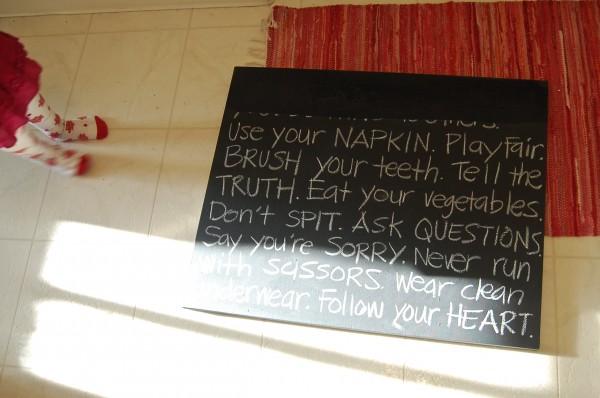 Use your NAPKIN. Play Fair.
BRUSH your teeth. Tell the
TRUTH. Eat your vegetables.
Don't SPIT. ASK QUESTIONS.
Say you're SORRY. Never run
with SCISSORS. Wear clean
underwear. Follow your HEART.